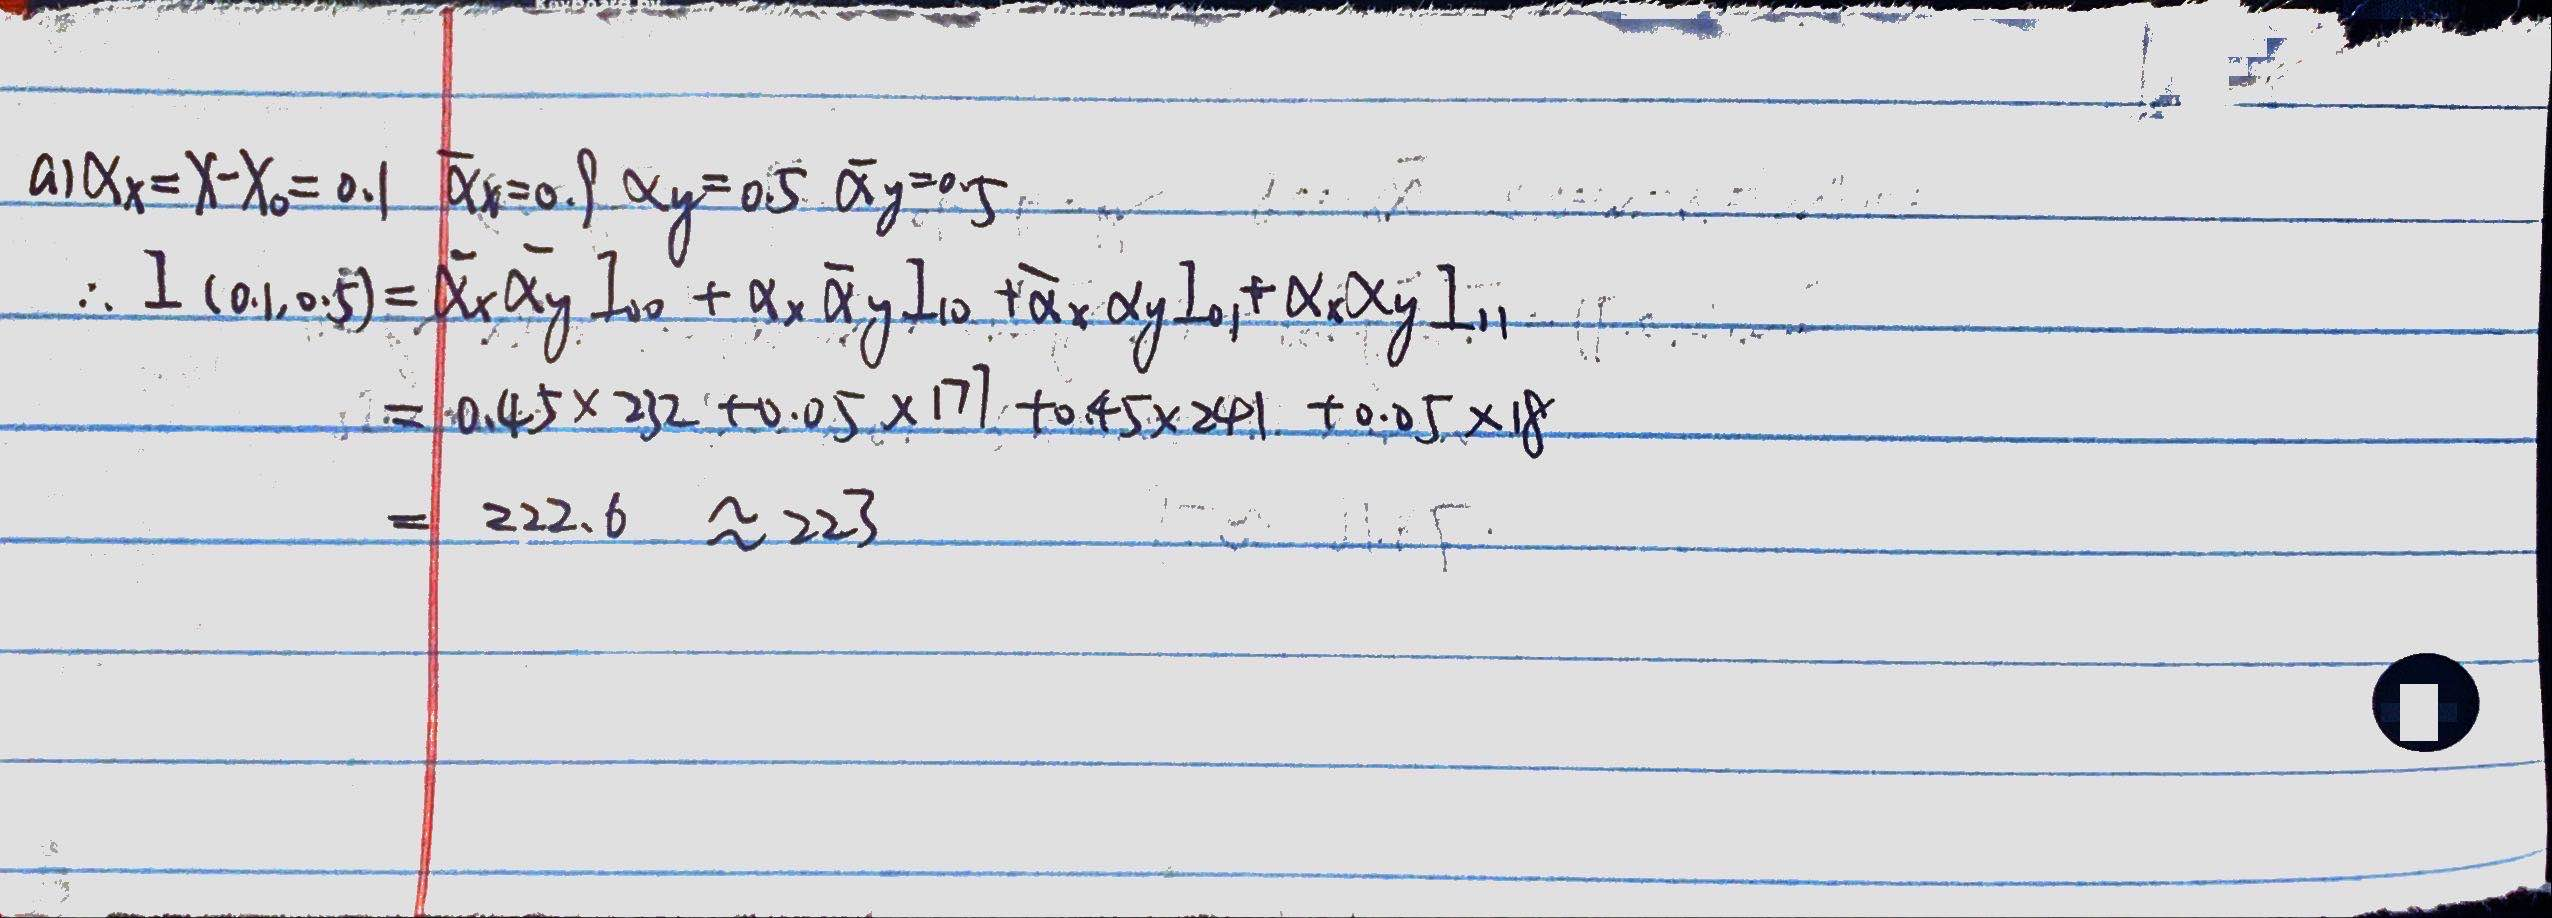 a) αx = X - X₀ = 0.1 ᾱx = 0.9 αy = 0.5 ᾱy = 0.5
∴ I (0.1, 0.5) = ᾱx ᾱy I₀₀ + αx ᾱy I₁₀ + ᾱx αy I₀₁ + αx αy I₁₁
= 0.45 × 232 + 0.05 × 177 + 0.45 × 241 + 0.05 × 18
= 222.6 ≈ 223